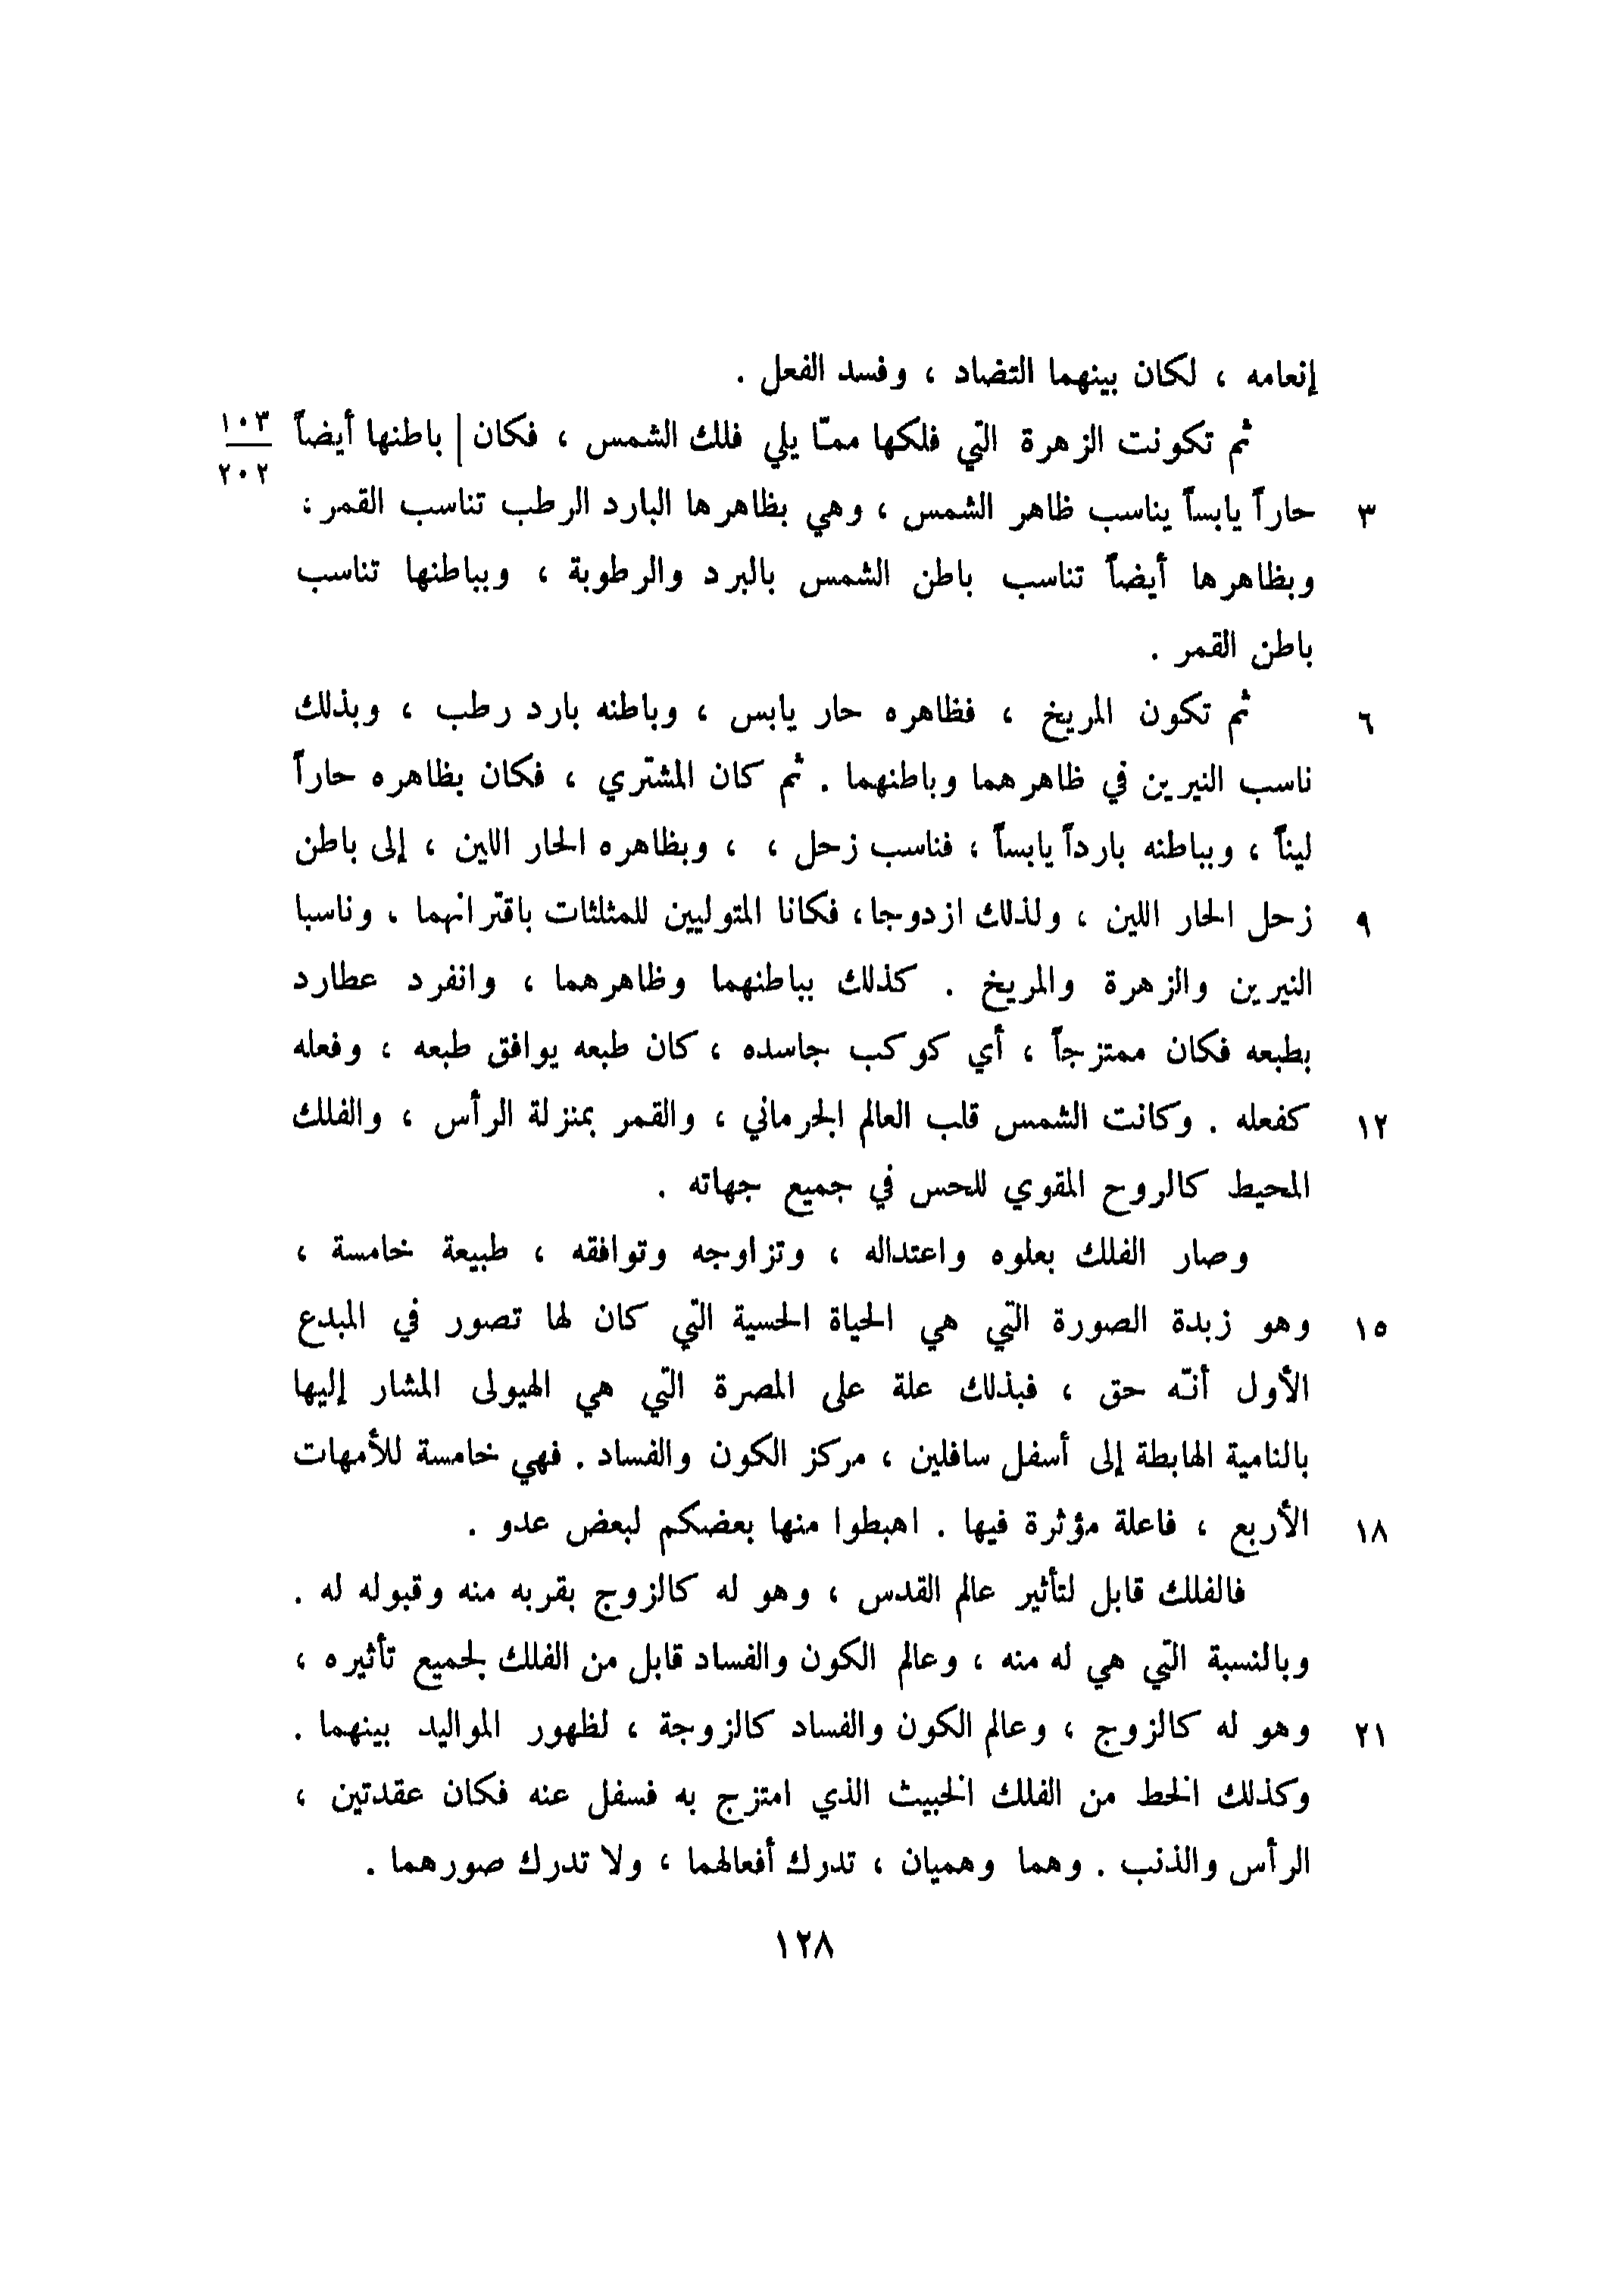 إنعامه ، لكان بينهما التضاد ، وفسد الفعل .
ثم تكونت الزهرة التي فلكها ممّا يلي فلك الشمس ، فكان | باطنها أيضاً ١٠٣
٢٠٢
٣ حاراً يابساً يناسب ظاهر الشمس ، وهي بظاهرها البارد الرطب تناسب القمر :
وبظاهرها أيضاً تناسب باطن الشمس بالبرد والرطوبة ، وبباطنها تناسب
باطن القمر .
٦ ثم تكون المريخ ، فظاهره حار يابس ، وباطنه بارد رطب ، وبذلك
ناسب النيرين في ظاهرهما وباطنهما . ثم كان المشتري ، فكان بظاهره حاراً
ليناً ، وبباطنه بارداً يابساً ، فناسب زحل ، ، وبظاهره الحار اللين ، إلى باطن
٩ زحل الحار اللين ، ولذلك ازدوجا ، فكانا المتوليين للمثلثات باقترانهما . وناسبا
النيرين والزهرة والمريخ . كذلك بباطنهما وظاهرهما ، وانفرد عطارد
بطبعه فكان ممتزجاً ، أي كوكب جاسده ، كان طبعه يوافق طبعه ، وفعله
١٢ كفعله . وكانت الشمس قلب العالم الجرماني ، والقمر بمنزلة الرأس ، والفلك
المحيط كالروح المقوي للحس في جميع جهاته .
وصار الفلك بعلوه واعتداله ، وتزاوجه وتوافقه ، طبيعة خامسة ،
١٥ وهو زبدة الصورة التي هي الحياة الحسية التي كان لها تصور في المبدع
الأول أنّه حق ، فبذلك علة على المصرة التي هي الهيولى المشار إليها
بالنامية الهابطة إلى أسفل سافلين ، مركز الكون والفساد . فهي خامسة للأمهات
١٨ الأربع ، فاعلة مؤثرة فيها . اهبطوا منها بعضكم لبعض عدو .
فالفلك قابل لتأثير عالم القدس ، وهو له كالزوج بقربه منه وقبوله له .
وبالنسبة التي هي له منه ، وعالم الكون والفساد قابل من الفلك لجميع تأثيره ،
٢١ وهو له كالزوج ، وعالم الكون والفساد كالزوجة ، لظهور المواليد بينهما .
وكذلك الخط من الفلك الخبيث الذي امتزج به فسفل عنه فكان عقدتين ،
الرأس والذنب . وهما وهميان ، تدرك أفعالهما ، ولا تدرك صورهما .
١٢٨